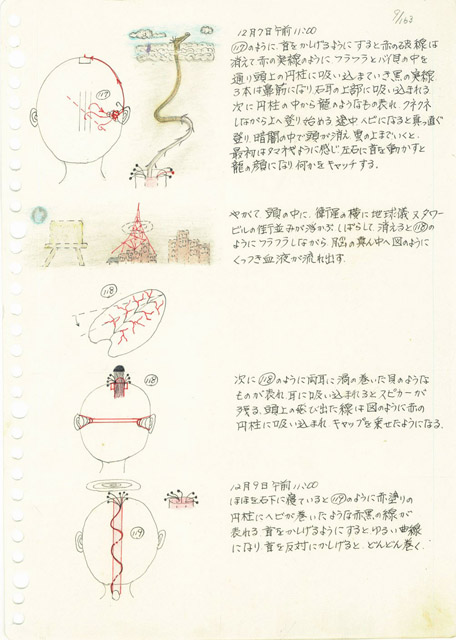 9/163
12月7日午前11:00
117のように、首をかしげるようにすると赤の破線は
消えて赤の実線のように、フラフラとバイ貝の中を
通り頭上の円柱に吸い込まていき黒の実線
3本は扇筋になり右耳の上部に吸い込まれる
次に円柱の中から龍のようなもの表れ、クネクネ
しながら上へ登り始める、途中ヘビになると真っ直ぐ
登り、暗闇の中で頭が消え雲の上までいくと、
最初はタマネやように感じ左右に首を動かすと
龍の顔になり何かをキャッチする。
117
やがて、頭の中に、衛星の横に地球議、又タワー
ビルの街並みが浮かぶ、しばらくして、消えると118の
ようにフラフラしながら脳の真ん中へ図のように
くっつき血液が流れ出す。
118
次に118のように両耳に渦の巻いた貝のような
ものが表れ、耳に吸い込まれるとスピカーが
残る。頭上の飛び出た線は図のように赤の
円柱に吸い込まれキャップを乗せたようになる。
118
12月9日午前11:00
ほほを右下に寝ていると119のように赤塗りの
円柱にヘビが巻いたような赤黒の線が
表れる、首をかしげるようにするとゆるい曲線
になり、首を反対にかしげると、どんどん巻く.
119